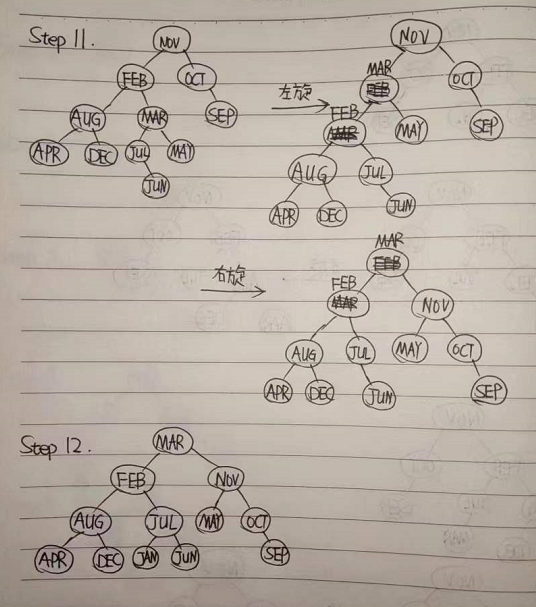 Step 11.
NOV
FEB OCT
AUG MAR SEP
APR DEC JUL MAY
JUN
左旋
NOV
MAR
FEB
OCT
FEB
MAR
MAY SEP
AUG JUL
APR DEC JUN
右旋
MAR
FEB
FEB
MAR
NOV
AUG JUL MAY OCT
APR DEC JUN SEP
Step 12.
MAR
FEB NOV
AUG JUL MAY OCT
APR DEC JAN JUN SEP